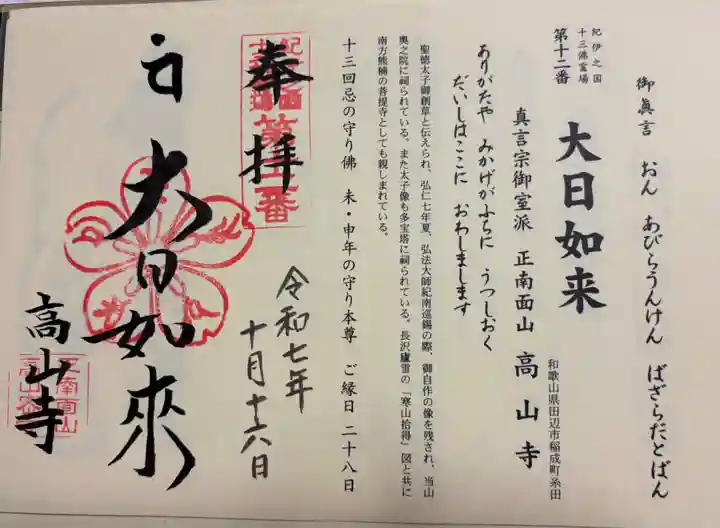 御眞言 おん あびらうんけん ばざらだとばん
紀伊之国
十三佛霊場
第十二番
大日如来
和歌山県田辺市稲成町糸田
真言宗御室派 正南面山 高山寺
ありがたや みかげがふちに うつしおく
だいしはここに おわしまします
聖徳太子御創草と伝えられ、弘仁七年夏、弘法大師紀南巡錫の際、御自作の像を残され、当山
奥之院に祠られている。また太子像も多宝塔に祠られている。長沢廬雪の「寒山拾得」図と共に
南方熊楠の菩提寺としても親しまれている。
十三回忌の守り佛 未・申年の守り本尊 ご縁日 二十八日
奉拝
第十二番
令和七年
十月十六日
大日如來
高山寺
正南面山
高山寺